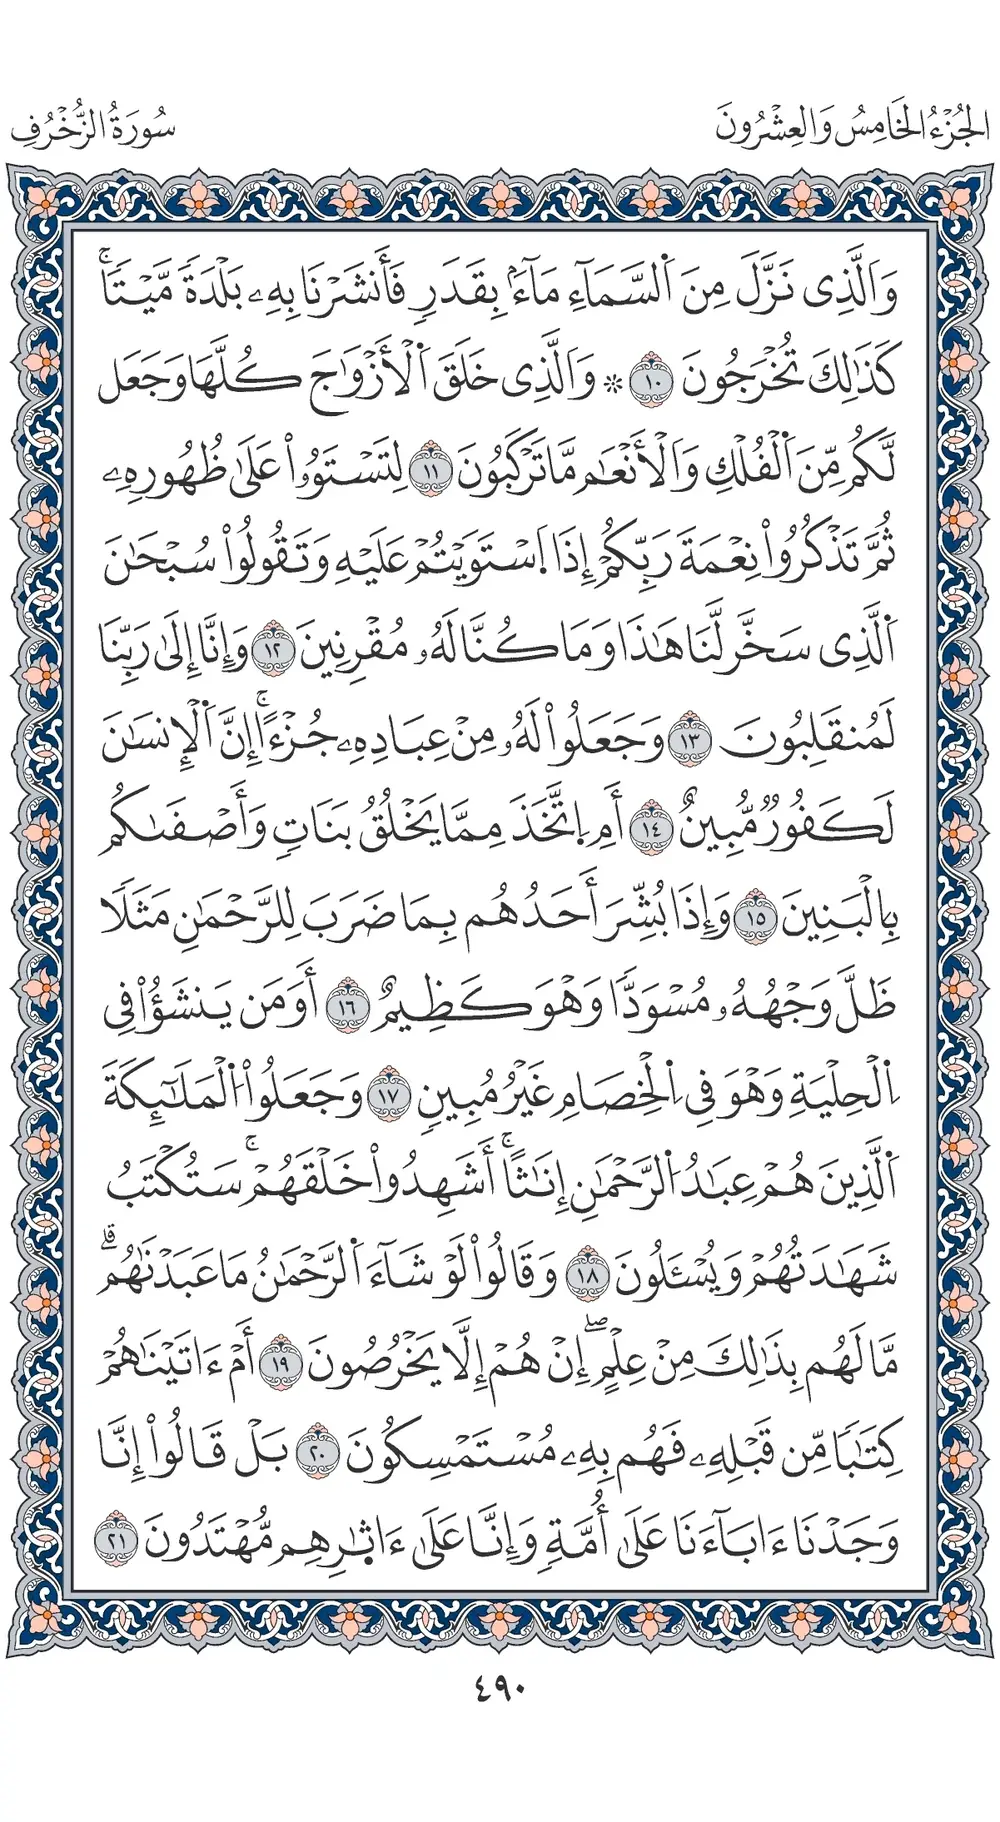 الجُزْءُ الخَامِسُ وَالعِشْرُونَ
سُورَةُ الزُّخْرُفِ
وَالَّذِى نَزَّلَ مِنَ اَلسَّمَآءِ مَآءَۢ بِقَدَرٖ فَأَنشَرْنَا بِهِۦ بَلْدَةٗ مَّيْتٗاۚ
كَذَٰلِكَ تُخْرَجُونَ ١٠ ۞ وَالَّذِى خَلَقَ اَلْأَزْوَٰجَ كُلَّهَا وَجَعَل
لَّكُم مِّنَ اَلْفُلْكِ وَالْأَنْعَٰمِ مَا تَرْكَبُونَ ١١ لِتَسْتَوُۥاْ عَلَىٰ ظُهُورِهِۦ
ثُمَّ تَذْكُرُواْ نِعْمَةَ رَبِّكُمْ إِذَا اَسْتَوَيْتُمْ عَلَيْهِ وَتَقُولُواْ سُبْحَٰنَ
اَلَّذِى سَخَّر لَّنَا هَٰذَا وَمَا كُنَّا لَهُۥ مُقْرِنِينَ ١٢ وَإِنَّا إِلَىٰ رَبِّنَا
لَمُنقَلِبُونَ ١٣ وَجَعَلُواْ لَهُۥ مِنْ عِبَادِهِۦ جُزْءًاۚ إِنَّ اَلْإِنسَٰنَ
لَكَفُورٞ مُّبِينٌ ١٤ أَمِ اِتَّخَذَ مِمَّا يَخْلُقُ بَنَاتٖ وَأَصْفَىٰكُم
بِالْبَنِينَ ١٥ وَإِذَا بُشِّرَ أَحَدُهُم بِمَا ضَرَبَ لِلرَّحْمَٰنِ مَثَلٗا
ظَلَّ وَجْهُهُۥ مُسْوَدّٗا وَهْوَ كَظِيمٌ ١٦ أَوَمَن يَنشَؤُاْ فِى
اِلْحِلْيَةِ وَهْوَ فِى اِلْخِصَامِ غَيْرُ مُبِينٖ ١٧ وَجَعَلُواْ اُلْمَلَٰٓئِكَةَ
اَلَّذِينَ هُمْ عِبَٰدُ اُلرَّحْمَٰنِ إِنَٰثًاۚ أَشَهِدُواْ خَلْقَهُمْۚ سَتُكْتَبُ
شَهَٰدَتُهُمْ وَيُسْـَٔلُونَ ١٨ وَقَالُواْ لَوْ شَآءَ اَلرَّحْمَٰنُ مَا عَبَدْنَٰهُمۗ
مَّا لَهُم بِذَٰلِكَ مِنْ عِلْمٍۖ إِنْ هُمْ إِلَّا يَخْرُصُونَ ١٩ أَمْ ءَاتَيْنَٰهُمْ
كِتَٰبٗا مِّن قَبْلِهِۦ فَهُم بِهِۦ مُسْتَمْسِكُونَ ٢٠ بَلْ قَالُواْ إِنَّا
وَجَدْنَا ءَابَآءَنَا عَلَىٰ أُمَّةٖ وَإِنَّا عَلَىٰ ءَاثٰ۪رِهِم مُّهْتَدُونَ ٢١
٤٩٠